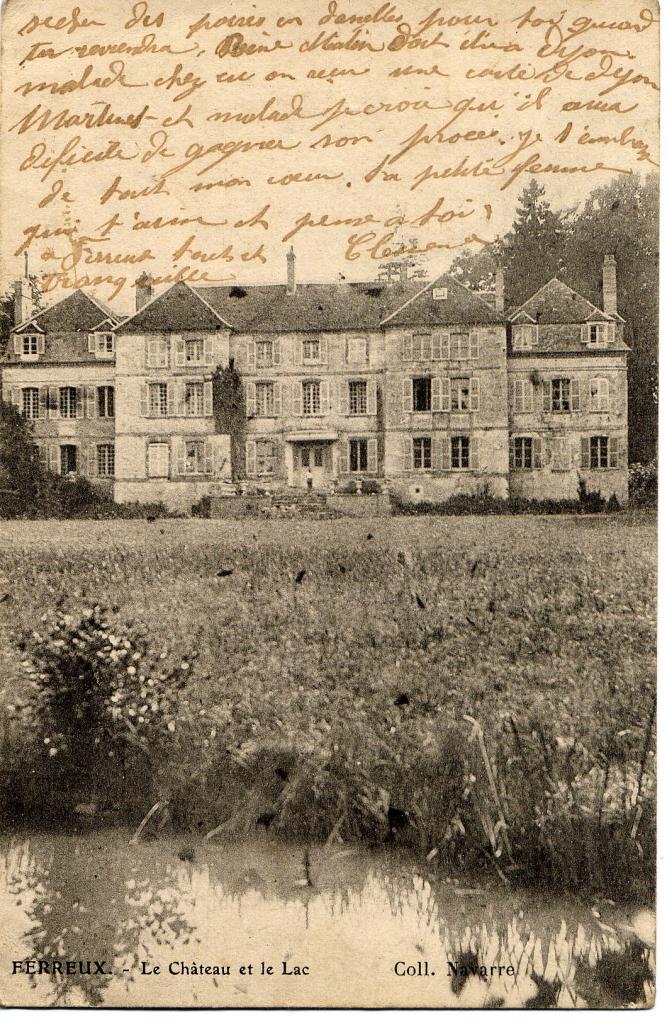 secher des poires en danelles pour toi quand
tu reviendra, Reine Martin doit être a Dijon
malade chez eu on recu une carte de Dijon
Martinet et malade je croie qu'il aura
dificile de gagner son procès. je t'embrasse
de tout mon coeur. ta petite femme
qui t'aime et pense a toi
Clemence
a Ferreux tout et
tranquille
FERREUX. - Le Château et le Lac
Coll. Navarre